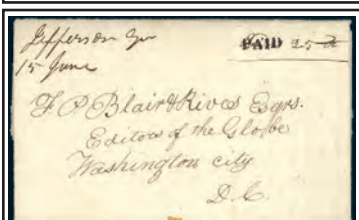 Jefferson
15 June
PAID 25
F. P. Blair & Rives Esqrs.
Editors of the Globe
Washington city
D. C.